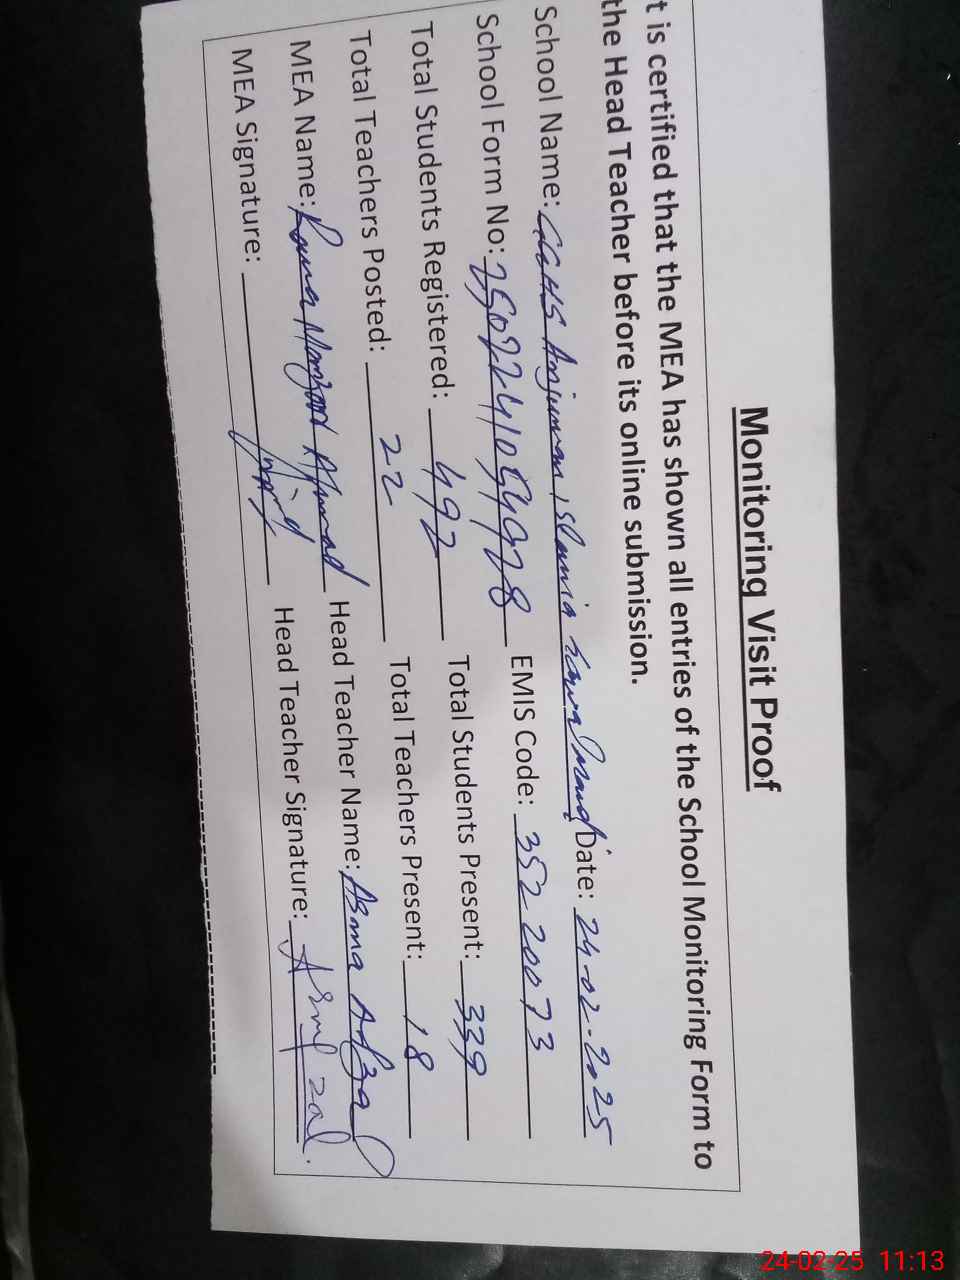 Monitoring Visit Proof
t is certified that the MEA has shown all entries of the School Monitoring Form to
the Head Teacher before its online submission.
School Name: GGHS Anjuman islamia Date: 24-02-2025
School Form No: EMIS Code: 35220073
Total Students Registered: 492 Total Students Present: 339
Total Teachers Posted: 22 Total Teachers Present: 18
MEA Name: Ahmad Head Teacher Name: Asma Afzal
MEA Signature: Head Teacher Signature:
24-02-25 11:13